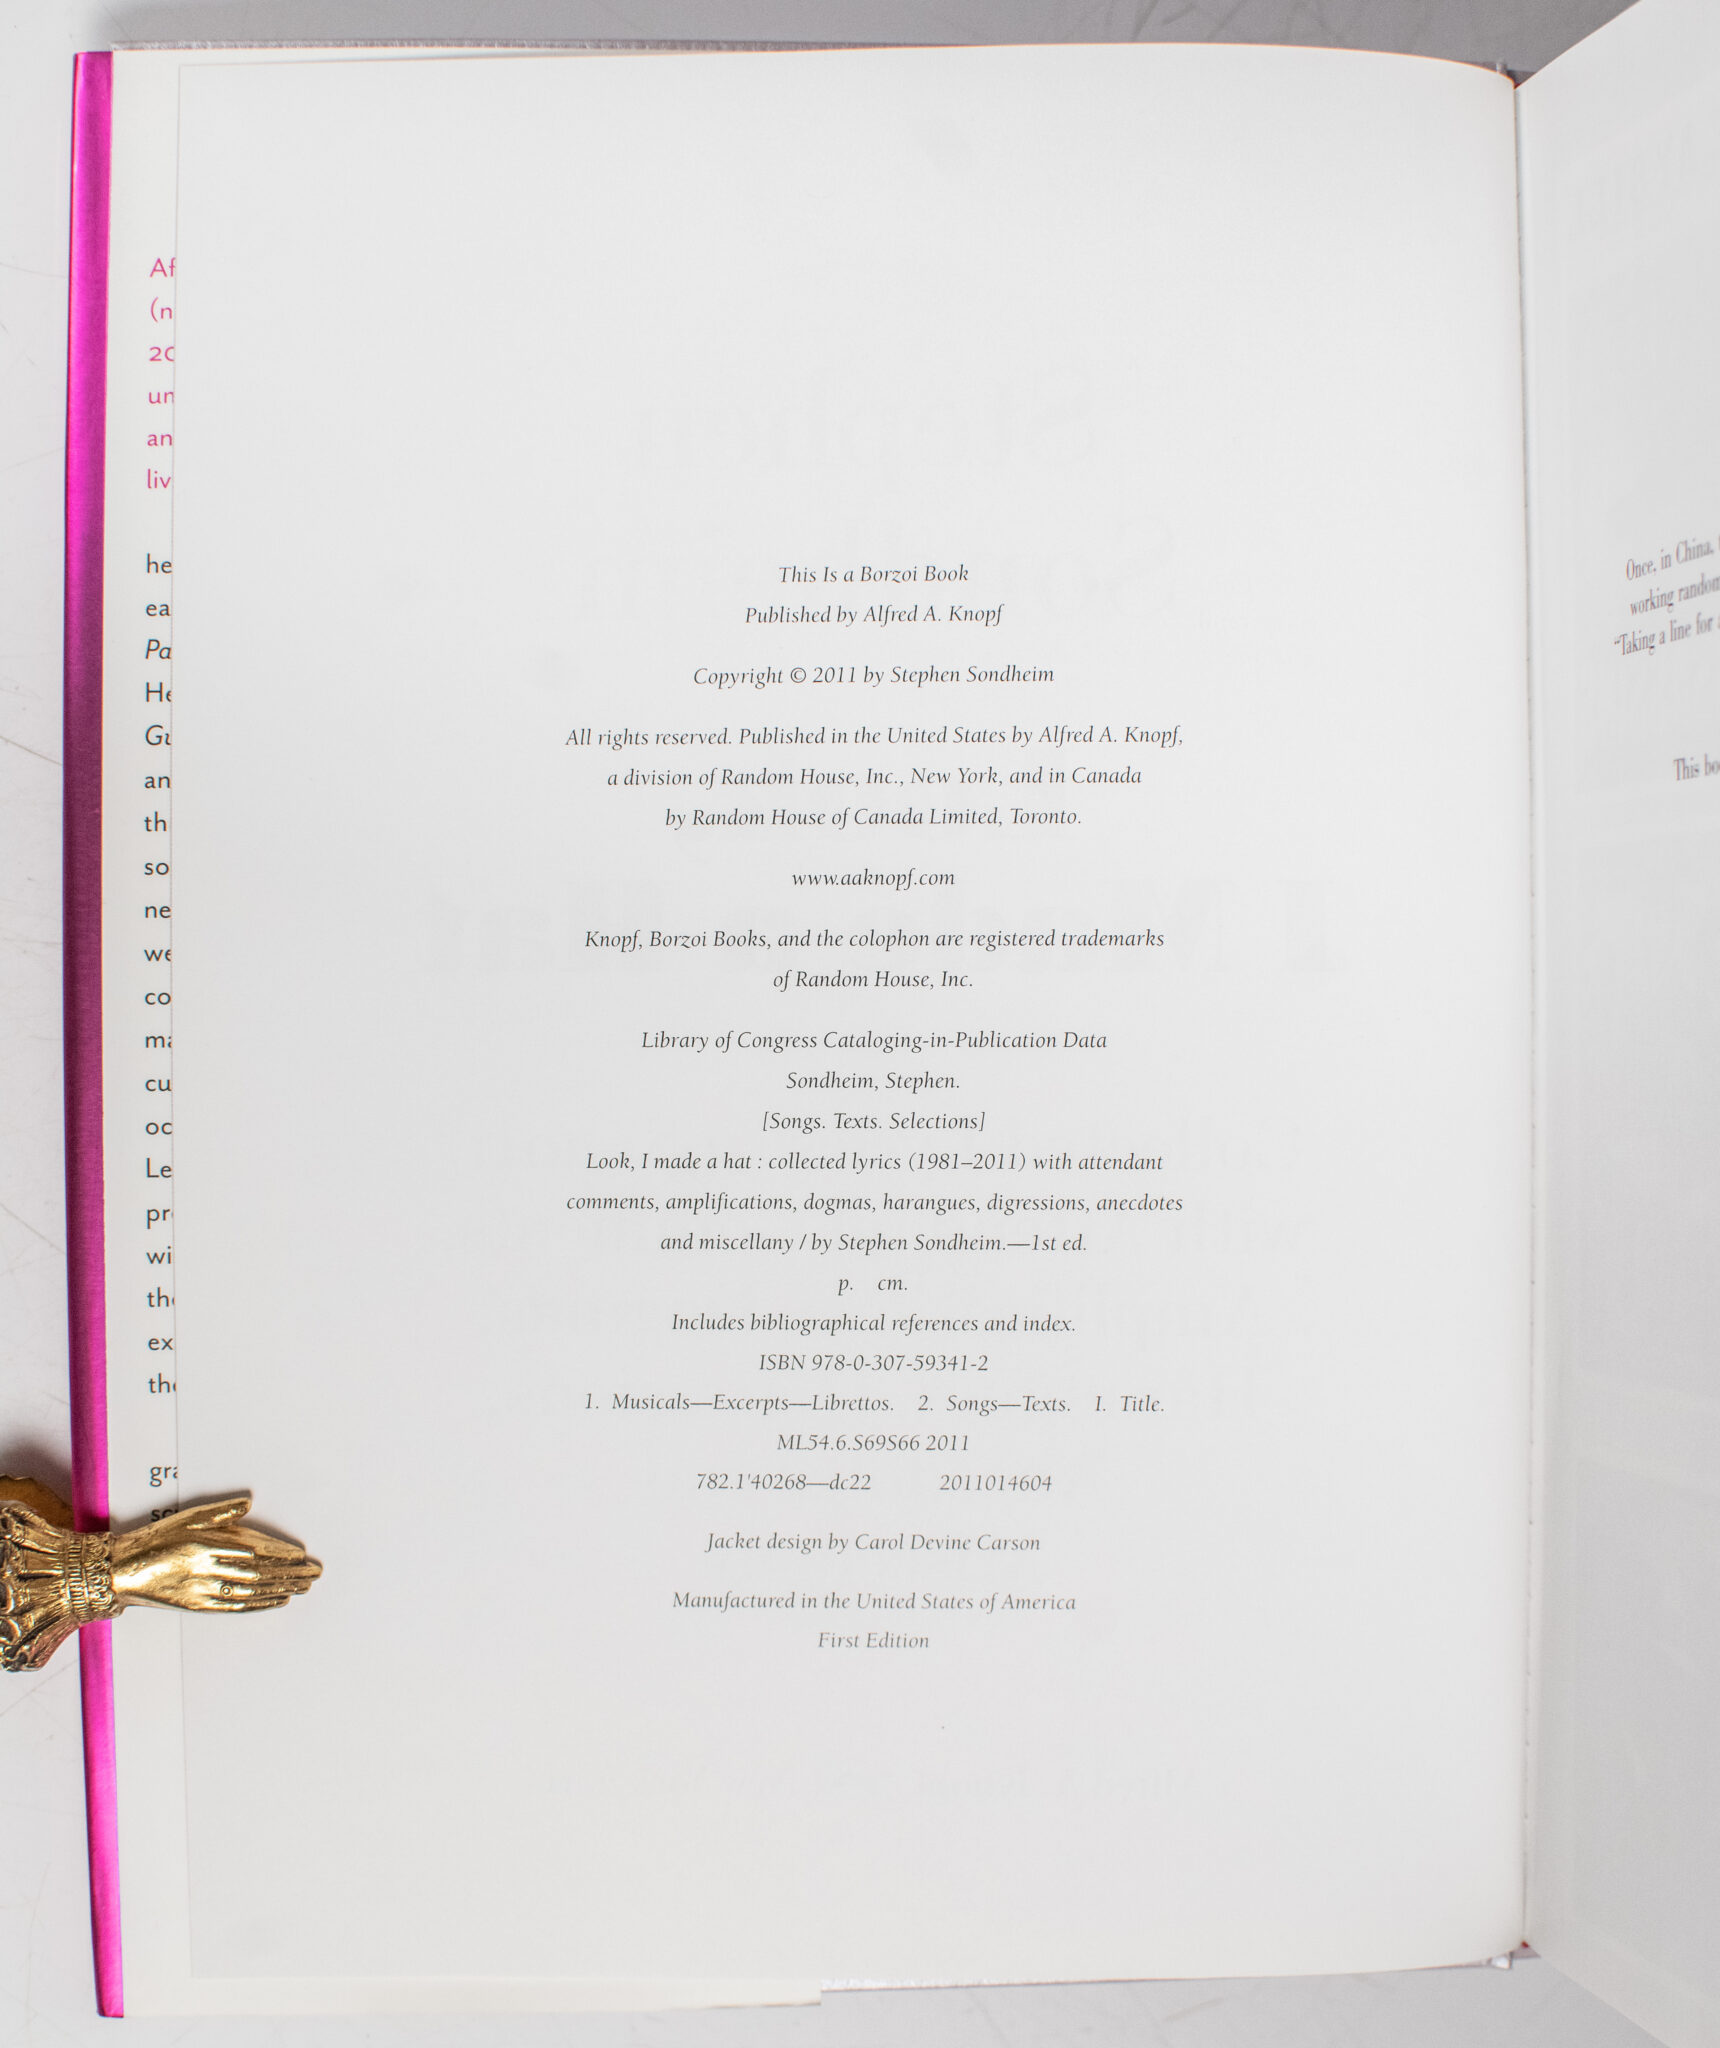 This Is a Borzoi Book
Published by Alfred A. Knopf
Copyright © 2011 by Stephen Sondheim
All rights reserved. Published in the United States by Alfred A. Knopf,
a division of Random House, Inc., New York, and in Canada
by Random House of Canada Limited, Toronto.
www.aaknopf.com
Knopf, Borzoi Books, and the colophon are registered trademarks
of Random House, Inc.
Library of Congress Cataloging-in-Publication Data
Sondheim, Stephen.
[Songs. Texts. Selections]
Look, I made a hat : collected lyrics (1981–2011) with attendant
comments, amplifications, dogmas, harangues, digressions, anecdotes
and miscellany / by Stephen Sondheim.—1st ed.
p. cm.
Includes bibliographical references and index.
ISBN 978-0-307-59341-2
1. Musicals—Excerpts—Librettos. 2. Songs—Texts. I. Title.
ML54.6.S69S66 2011
782.1'40268—dc22 2011014604
Jacket design by Carol Devine Carson
Manufactured in the United States of America
First Edition
Once, in China,
working random
"Taking a line for
This